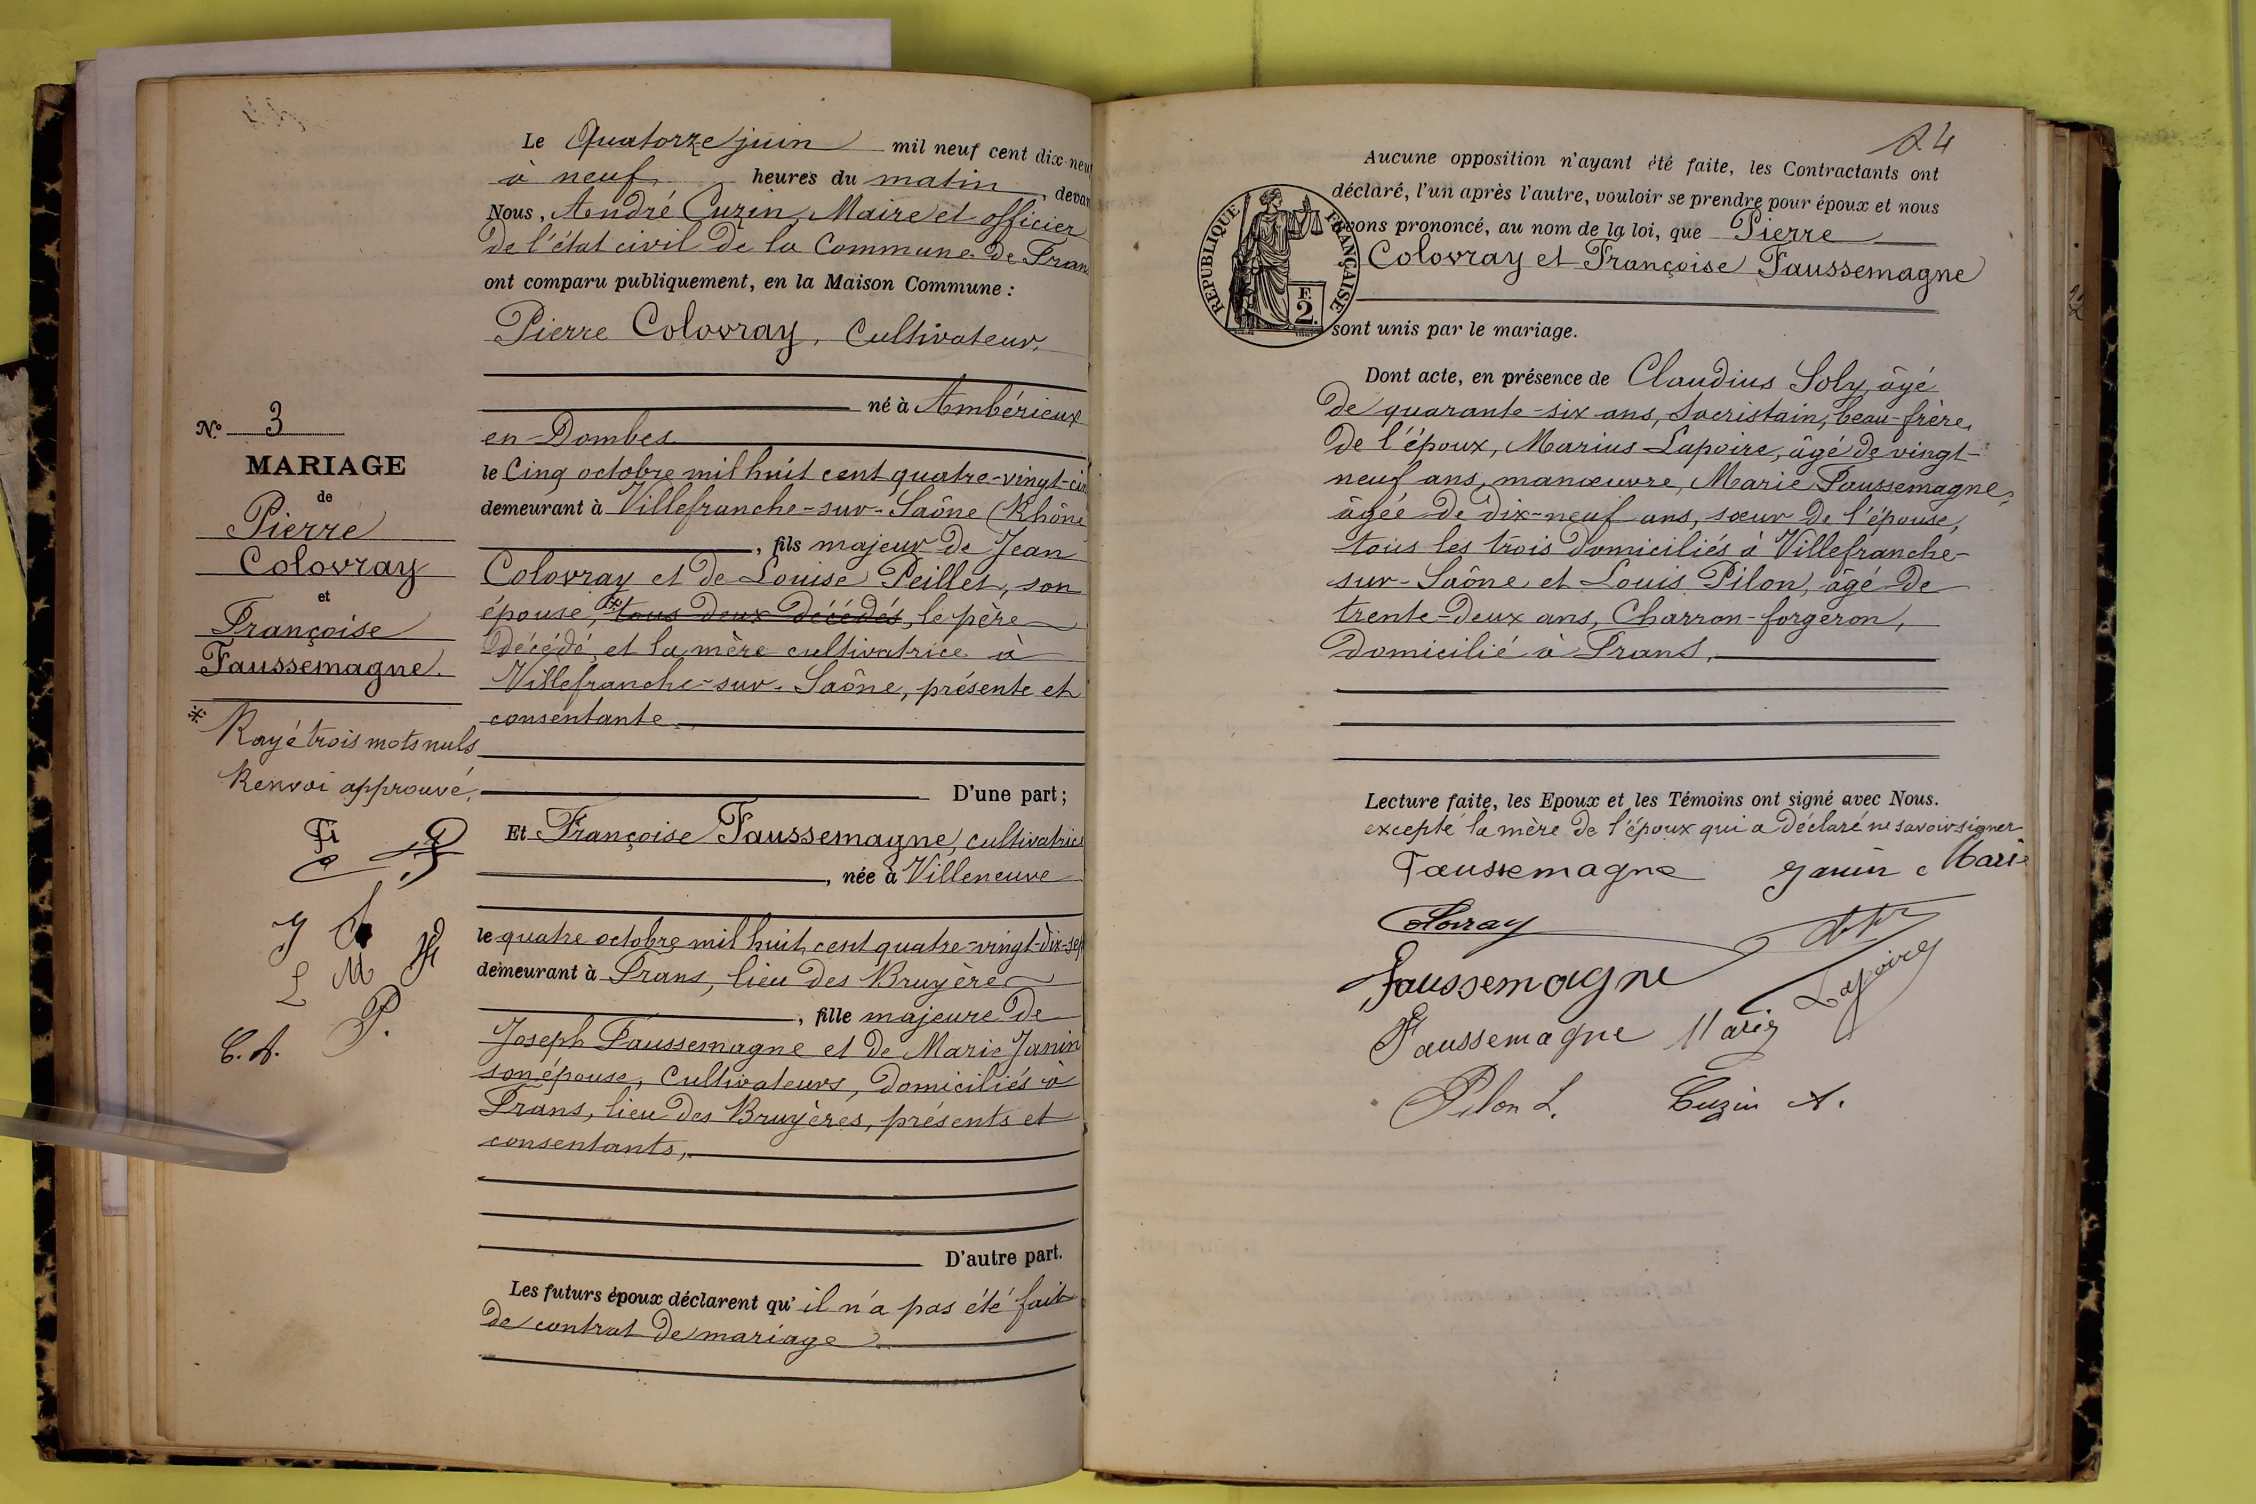 Le Quatorze juin mil neuf cent dix-neuf
à neuf heures du matin, devan
Nous, André Cuzin, Maire et officier
de l'état civil de la Commune de Frans
ont comparu publiquement, en la Maison Commune :
Pierre Colovray, Cultivateur,
né à Ambérieux
en Dombes
le Cinq octobre mil huit cent quatre-vingt-cin
demeurant à Villefranche-sur-Saône (Rhône
, fils majeur de Jean
Colovray et de Louise Peillet, son
épouse, tous deux décédés, le père
décédé, et la mère cultivatrice à
Villefranche-sur-Saône, présente et
consentante
D'une part ;
Et Françoise Faussemagne, cultivatrice
, née à Villeneuve
le quatre octobre mil huit cent quatre-vingt-dix-sep
demeurant à Frans, lieu des Bruyères
, fille majeure de
Joseph Faussemagne et de Marie Janin
son épouse, Cultivateurs, domiciliés à
Frans, lieu des Bruyères, présents et
consentants,
D'autre part.
Les futurs époux déclarent qu' il n'a pas été fait
de contrat de mariage
N.º 3
MARIAGE
de
Pierre
Colovray
et
Françoise
Faussemagne.
* Rayé trois mots nuls
Renvoi approuvé.
L M
P.
C. A.
24
Aucune opposition n'ayant été faite, les Contractants ont
déclaré, l'un après l'autre, vouloir se prendre pour époux et nous
avons prononcé, au nom de la loi, que Pierre
Colovray et Françoise Faussemagne
RÉPUBLIQUE FRANÇAISE
F.
2.
sont unis par le mariage.
Dont acte, en présence de Claudius Soly, âgé
de quarante-six ans, Sacristain, beau-frère
de l'époux, Marius Lapoire, âgé de vingt-
neuf ans, manœuvre, Marie Faussemagne,
âgée de dix-neuf ans, sœur de l'épouse,
tous les trois domiciliés à Villefranche-
sur-Saône et Louis Pilon, âgé de
trente-deux ans, Charron-forgeron,
domicilié à Frans.
Lecture faite, les Epoux et les Témoins ont signé avec Nous.
excepté la mère de l'époux qui a déclaré ne savoir signer
Faussemagne Janin Marie
Colovray
Faussemagne Lapoire
Faussemagne Marie
Pilon L. Cuzin A.